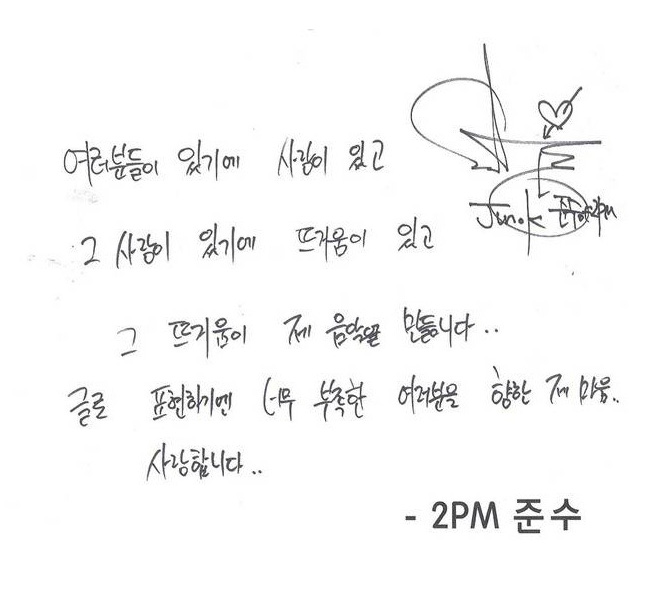 여러분들이 있기에 사랑이 있고
그 사랑이 있기에 뜨거움이 있고
그 뜨거움이 제 음악을 만듭니다..
글로 표현하기엔 너무 부족한 여러분을 향한 제 마음..
사랑합니다..
- 2PM 준수